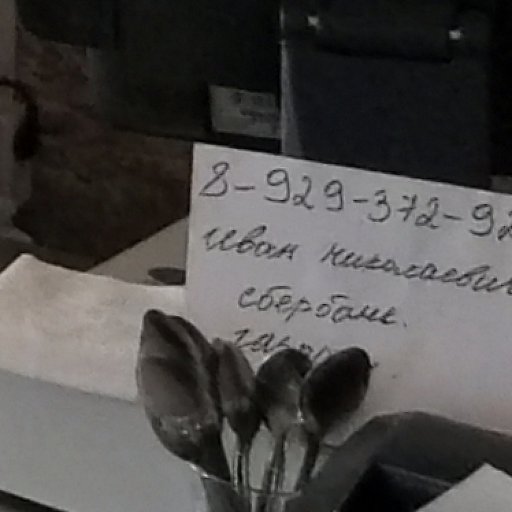 8-929-372-92
Иван Николаевич
сбербанк.